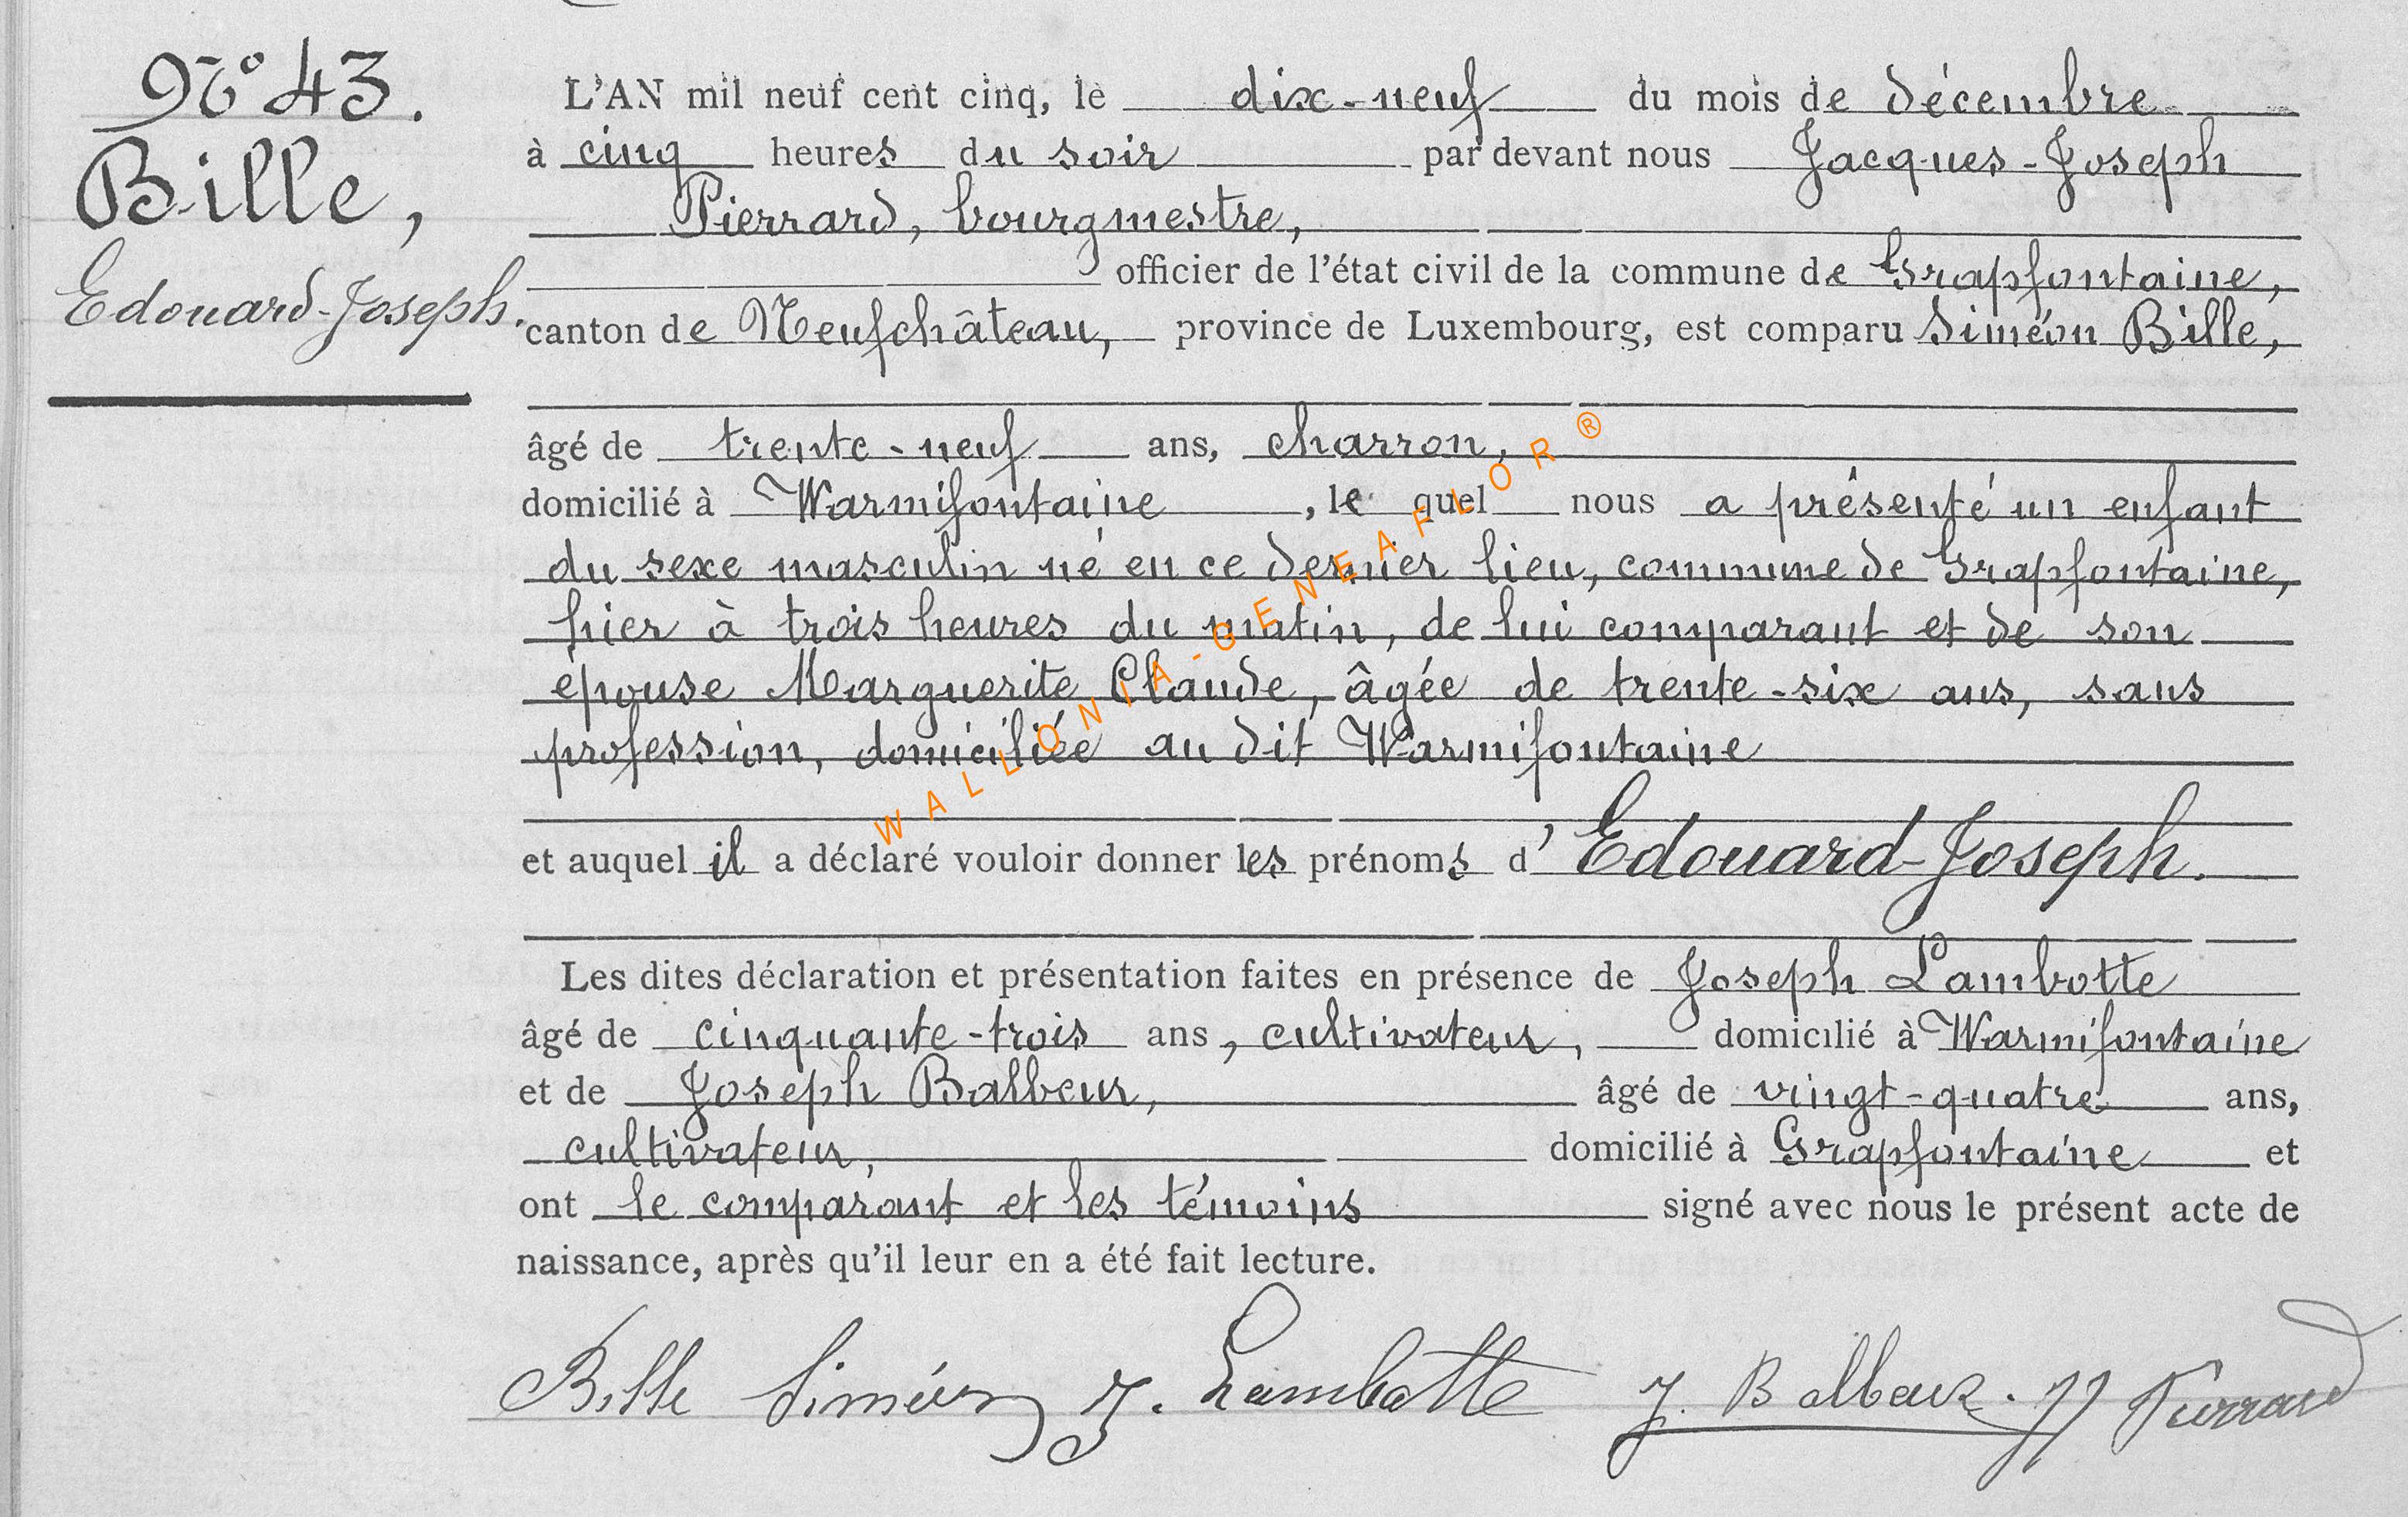 N° 43.
Bille,
Edouard-Joseph.
L'AN mil neuf cent cinq, le dix-neuf du mois de décembre
à cinq heures du soir par devant nous Jacques-Joseph
Pierrard, bourgmestre,
officier de l'état civil de la commune de Grapfontaine,
canton de Neufchâteau, province de Luxembourg, est comparu Siméon Bille,
âgé de trente-neuf ans, charron,
domicilié à Warmifontaine, le quel nous a présenté un enfant
du sexe masculin né en ce dernier lieu, commune de Grapfontaine,
hier à trois heures du matin, de lui comparant et de son
épouse Marguerite Claude, âgée de trente-six ans, sans
profession, domiciliée au dit Warmifontaine
et auquel il a déclaré vouloir donner les prénoms d'Edouard-Joseph.
Les dites déclaration et présentation faites en présence de Joseph Lambotte
âgé de cinquante-trois ans, cultivateur, domicilié à Warmifontaine
et de Joseph Balbeur, âgé de vingt-quatre ans,
cultivateur, domicilié à Grapfontaine et
ont le comparant et les témoins signé avec nous le présent acte de
naissance, après qu'il leur en a été fait lecture.
Bille Siméon J. Lambotte J. Balbeur. JJ Pierrard
WALLONIA-GENEAFLOR®